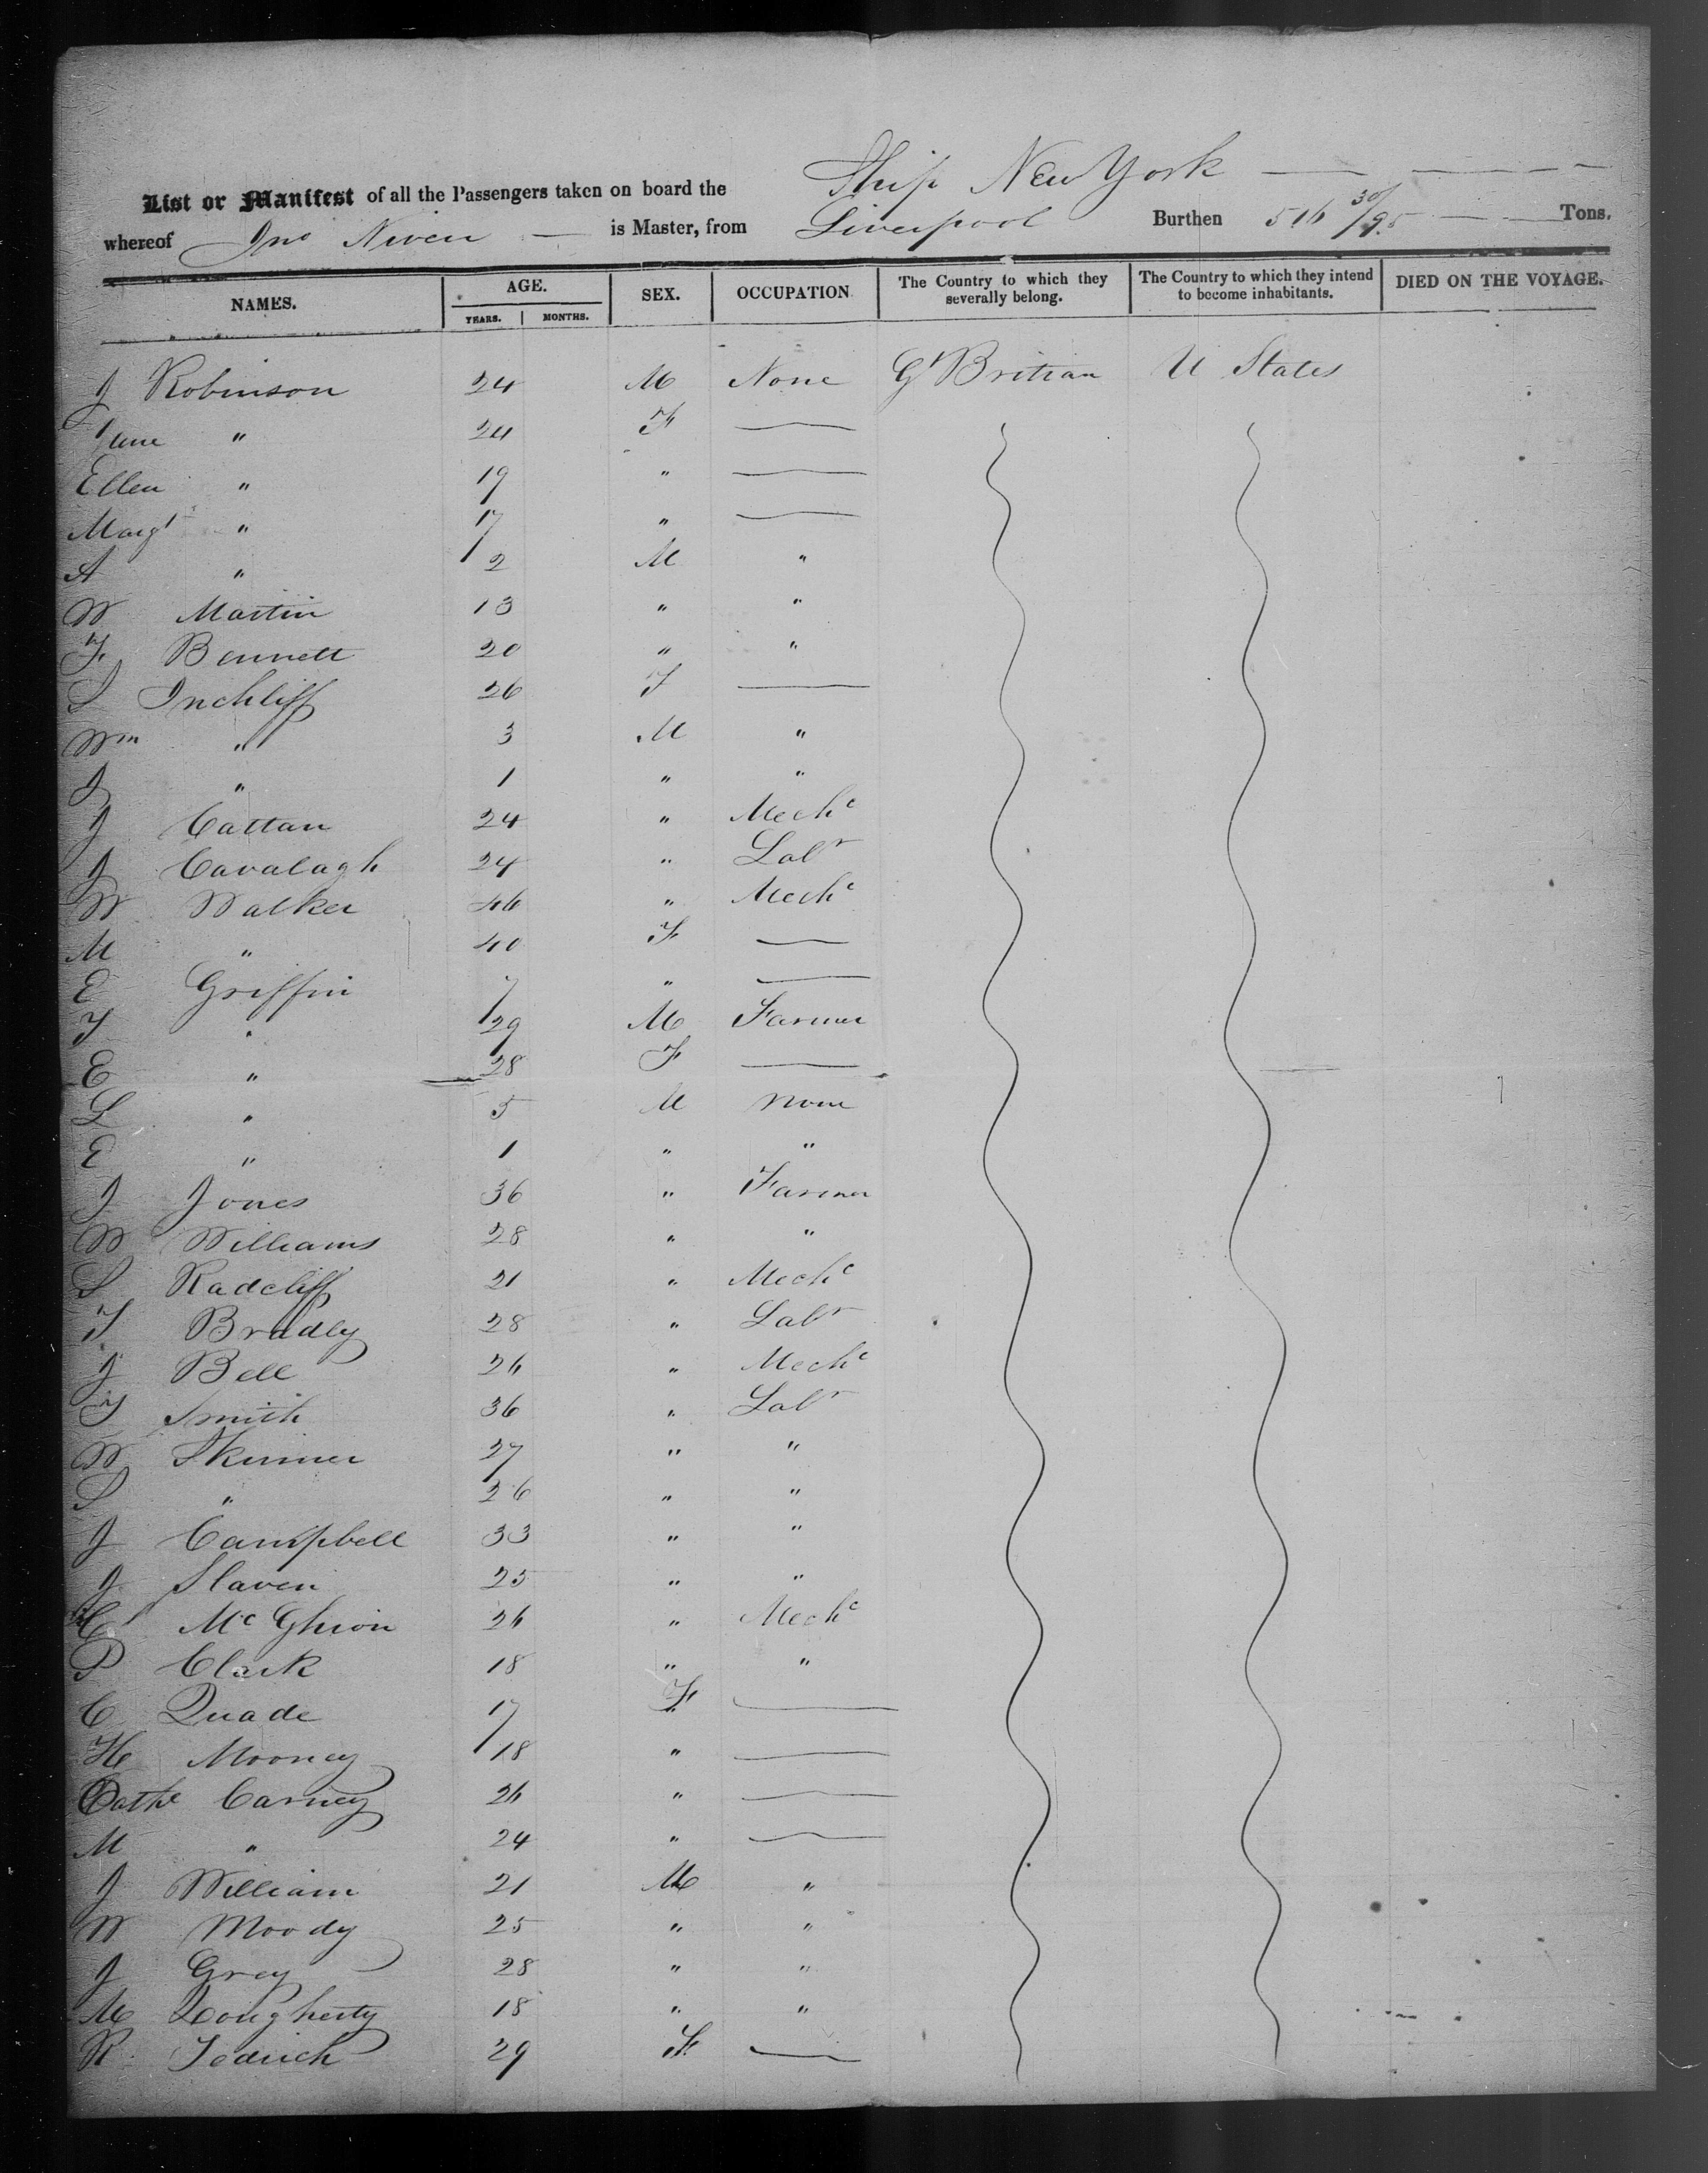 List or Manifest of all the Passengers taken on board the Ship New York
whereof Jno Niven is Master, from Liverpool Burthen 516 30/95 Tons.
NAMES. AGE. SEX. OCCUPATION The Country to which they severally belong. The Country to which they intend to become inhabitants. DIED ON THE VOYAGE.
YEARS. MONTHS.
J Robinson 24 M None Gt Britian U States
Jane " 24 F
Ellen " 19 "
Margt " 17 "
A " 2 M "
W Martin 13 " "
F Bennett 20 " "
S Inchliff 26 F
Wm " 3 M "
J " 1 " "
J Cattan 24 " Mechc
J Cavalagh 24 " Labr
W Walker 46 " Mechc
M " 40 F
E Griffin 7 "
T " 29 M Farmer
E " 28 F
L " 5 M None
E " 1 " "
J Jones 36 " Farmer
W Williams 28 " "
S Radcliff 21 " Mechc
T Bradley 28 " Labr
J Bell 26 " Mechc
T Smith 36 " Labr
W Skinner 27 " "
S " 26 " "
J Campbell 33 " "
J Slaven 25 " "
C McGhion 26 " Mechc
P Clark 18 " "
C Quade 17 F
H Mooney 18 "
Cathe Carney 26 "
M " 24 "
J William 21 M "
W Moody 25 " "
J Grey 28 " "
M Dougherty 18 " "
R 29 F